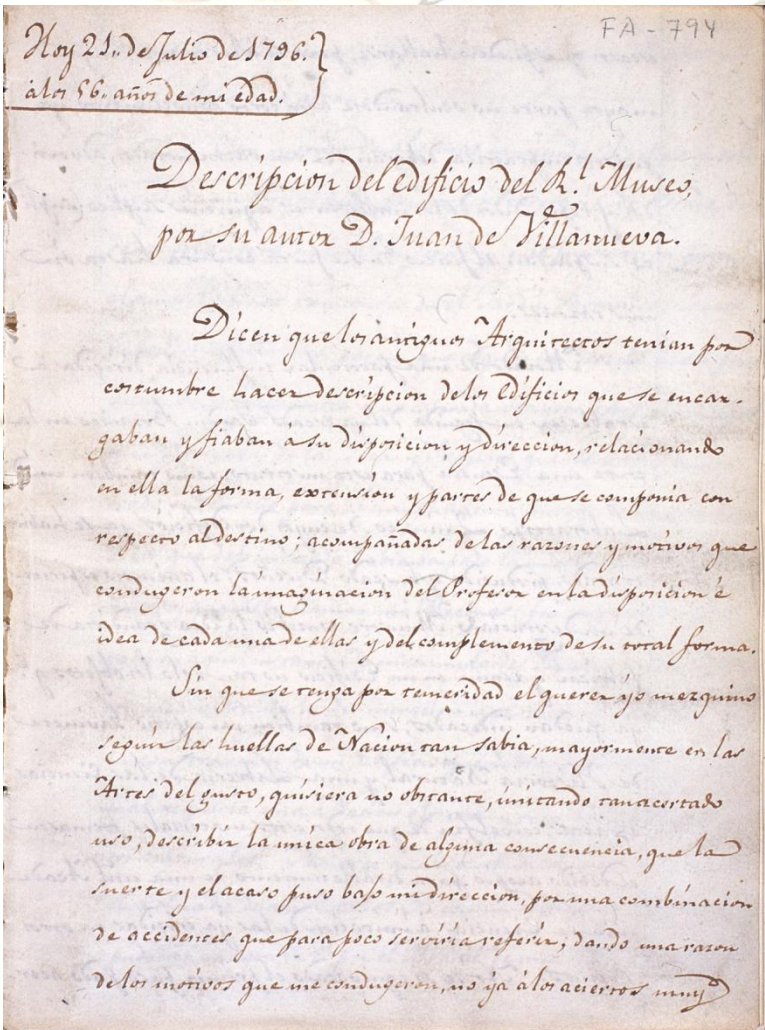 FA-794
Hoy 21,, de Julio de 1796.
á los 56,, años de mi edad.
Descripcion del edificio del R.l Museo,
por su autor D. Juan de Villanueva.
Dicen que los antiguos Arquitectos tenian por
costumbre hacer descripcion de los Edificios que se encar-
gaban y fiaban á su disposicion y direccion, relacionando
en ella la forma, extensión y partes de que se componía con
respecto al destino; acompañadas de las razones y motivos que
condugeron la imaginacion del Profesor en la disposicion é
idea de cada una de ellas y del complemento de su total forma.
Sin que se tenga por temeridad el querer yo mezquino
seguir las huellas de Nacion tan sabia, mayormente en las
Artes del gusto, quisiera no obstante, imitando tan acertado
uso, describir la unica obra de alguna consecuencia, que la
suerte y el acaso puso bajo mi direccion, por una combinacion
de accidentes que para poco serviría referir; dando una razon
de los motivos que me condugeron, no ya á los aciertos muy